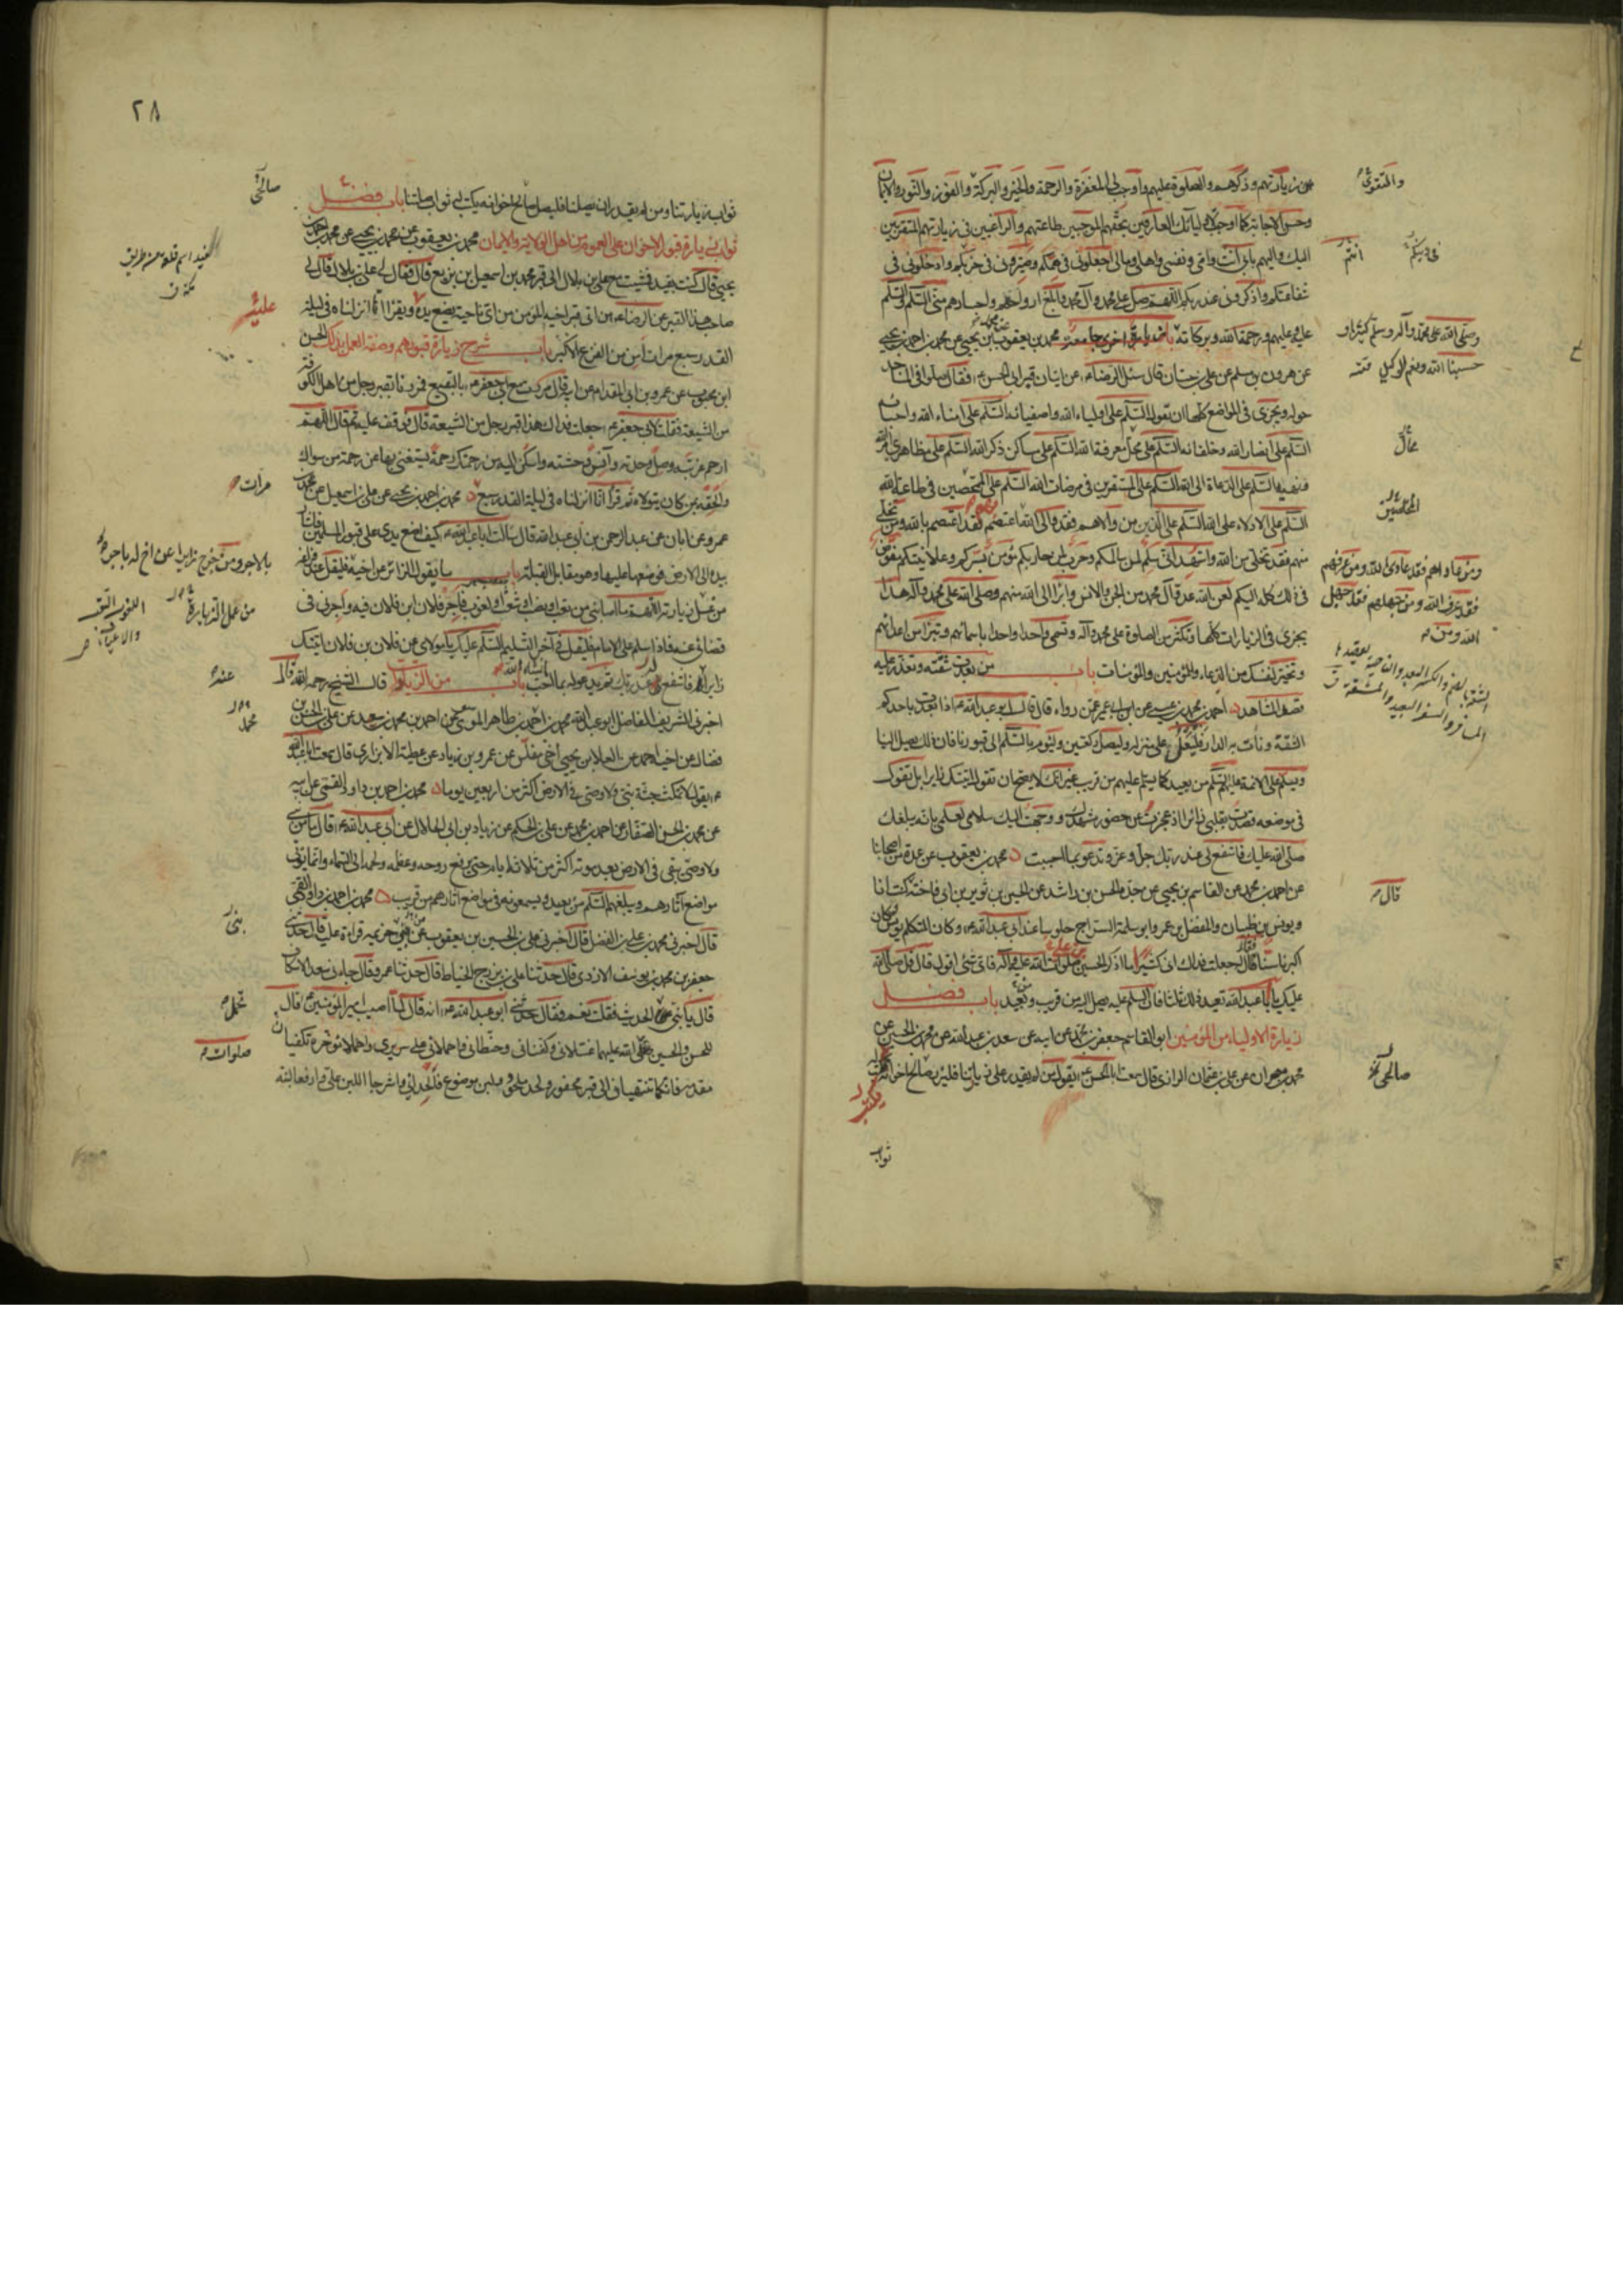 من زيارتهم وذكرهم والصلوة عليهم واوجب لي المغفرة والرحمة والخير والبركة والفوز والنور والايمان
وحسن الاجابة كما اوجبت لاوليائك العارفين بحقهم الموجبين طاعتهم والراغبين في زيارتهم المتقربين
اليك واليهم بابي انت وامي ونفسي واهلي ومالي اجعلوني في همكم وصيروني في حزبكم وادخلوني في
شفاعتكم واذكروني عند ربكم اللهم صل على محمد وآل محمد وابلغ ارواحهم واجسادهم مني السلم والسلم
عليه وعليهم ورحمة الله وبركاته باب زيارة اخرى جامعة محمد بن يعقوب عن محمد بن يحيى عن محمد بن احمد بن يحيى
عن هرون بن مسلم عن علي بن حسان قال سئل الرضا ع عن اتيان قبر ابي الحسن ع فقال صلوا في المساجد
حوله ويجزي في المواضع كلها ان تقول السلم على اولياء الله واصفيائه السلم على امناء الله واحبائه
السلم على انصار الله وخلفائه السلم على محل معرفة الله السلم على مساكن ذكر الله السلم على مظاهري امر الله
ونهيه السلم على الدعاة الى الله السلم على المستقرين في مرضات الله السلم على الممحصين في طاعة الله
السلم على الادلاء على الله السلم على الذين من والاهم فقد والى الله ومن اعتصم بهم فقد اعتصم بالله ومن تخلى
منهم فقد تخلى من الله واشهد الله اني سلم لمن سالمكم وحرب لمن حاربكم مؤمن بسركم وعلانيتكم مفوض
في ذلك كله اليكم لعن الله عدو آل محمد من الجن والانس وابرأ الى الله منهم وصلى الله على محمد وآله هذا
يجزي في الزيارات كلها وتكثر من الصلوة على محمد وآله وتسمي واحدا واحدا باسمائهم وتبرأ من اعدائهم
وتخير لنفسك من الدعاء وللمؤمنين والمؤمنات باب من بعدت شقته وتعذر عليه
قصد المشاهد احمد بن محمد بن عيسى عن ابن ابي عمير عمن رواه قال قال ابو عبد الله ع اذا بعدت باحدكم
الشقة ونأت به الدار فليعل على منزله وليصل ركعتين وليوم بالسلم الى قبورنا فان ذلك يصل الينا
ويسلم على الائمة عليهم السلم من بعيد كما يسلم عليهم من قريب غير انك لا يصح ان تقول اتيتك زائرا بل تقول
في موضعه قصدت بقلبي زائرا اذ عجزت عن حضور مشهدك ووجهت اليك سلامي لعلمي بانه يبلغك
صلى الله عليك فاشفع لي عند ربك جل وعز وتدعو بما احببت محمد بن يعقوب عن عدة من اصحابنا
عن احمد بن محمد عن القاسم بن يحيى عن جده الحسن بن راشد عن الحسين بن ثوير بن ابي فاخته كنت انا
ويونس بن ظبيان والمفضل بن عمر وابو سلمة السراج جلوسا عند ابي عبد الله ع وكان المتكلم يونس وكان
اكبرنا سنا فقال له جعلت فداك اني كثيرا ما اذكر الحسين صلوات الله عليه وآله فاي شئ اقول قال قل صلى الله
عليك يا ابا عبد الله تعيد ذلك ثلثا فان السلم عليه يصل اليه من قريب ومن بعيد باب فضل
زيارة الاولياء من المؤمنين ابو القاسم جعفر بن محمد عن ابيه عن سعد بن عبد الله عن محمد بن الحسين عن
محمد بن مهران عن علي بن عثمان الرازي قال سمعت ابا الحسن ع يقول من لم يقدر على زيارتنا فليزر صالح اخوانه
يكتب له
ثواب
والتقوى
في دينكم
انتم
وصلى الله على محمد وآله وسلم كثيرا و
حسبنا الله ونعم الوكيل
محال
المخلصين
ومن عاداهم فقد عادى الله ومن عرفهم
فقد عرف الله ومن جهلهم فقد جهل
الله ومن
الشقة بالضم والكسر البعد والناحية يقصدها
المسافر والسفر البعيد والمشقة ق
قال
صالحي
٢٨
ثواب زيارتنا ومن لم يقدر ان يصلنا فليصل صالح اخوانه يكتب له ثواب صلتنا باب فضل
ثواب زيارة قبور الاخوان على العموم من اهل الولاية والايمان محمد بن يعقوب عن محمد بن يحيى عن محمد بن احمد
يحيى قال كنت بفيد فمشيت مع علي بن بلال الى قبر محمد بن اسمعيل بن بزيع قال فقال لي علي بن بلال قال لي
صاحب هذا القبر عن الرضا ع من اتى قبر اخيه المؤمن من اي ناحية يضع يده ويقرأ انا انزلناه في ليلة
القدر سبع مرات امن من الفزع الاكبر باب شرح زيارة قبورهم وصفة العمل بذلك الحسن
ابن محبوب عن عمرو بن ابي المقدام عن ابيه قال مررت مع ابي جعفر ع بالبقيع فمررنا بقبر رجل من اهل الكوفة
من الشيعة فقلت لابي جعفر ع جعلت فداك هذا قبر رجل من الشيعة قال فوقف عليه ثم قال اللهم
ارحم غربته وصل وحدته وآنس وحشته واسكن اليه من رحمتك رحمة يستغني بها عن رحمة من سواك
والحقه بمن كان يتولاه ثم قرأ انا انزلناه في ليلة القدر سبع محمد بن احمد بن يحيى عن علي بن اسمعيل عن محمد بن
عمرو عن ابان عن عبد الرحمن بن ابي عبد الله قال سالت ابا عبد الله ع كيف اضع يدي على قبور المسلمين فاشار
بيده الى الارض فوضعها عليها وهو مقابل القبلة باب ما يقول الزائر عن اخيه فليقل عند فراغه
من غسل زيارته اللهم ما اصابني من تعب او نصب او شعث او لغوب فاجر فلان ابن فلان فيه واجرني في
قضائي عنه فاذا سلم على الامام فليقل في آخر التسليم السلم عليك يا مولاي من فلان بن فلان اتيتك
زائرا عنه فاشفع له عند ربك ثم تدعو له بما احببت انشاء الله باب من الزيادات قال الشيخ رحمه الله قال
اخبرني الشريف الفاضل ابو عبد الله محمد بن احمد بن طاهر الموسوي عن احمد بن محمد بن سعيد عن علي بن الحسن بن
فضال عن اخيه احمد عن العلا بن يحيى اخي مغلس عن عمرو بن زياد عن عطية الابزاري قال سمعت ابا عبد الله
ع يقول لا تمكث جثة نبي ولا وصي في الارض اكثر من اربعين يوما محمد بن احمد بن داود القمي عن ابيه
عن محمد بن الحسن الصفار عن احمد بن محمد عن علي بن الحكم عن زياد بن ابي الحلال عن ابي عبد الله ع قال ما من نبي
ولا وصي يبقى في الارض بعد موته اكثر من ثلاثة ايام حتى يرفع روحه وعظمه ولحمه الى السماء وانما يؤتى
مواضع آثارهم ويبلغهم السلم من بعيد ويسمعونه في مواضع آثارهم من قريب محمد بن احمد بن داود القمي
قال اخبرني محمد بن علي بن الفضل قال اخبرني علي بن الحسين بن يعقوب من بني خزيمه قراءة عليه قال حدثني
جعفر بن محمد بن يوسف الازدي قال حدثنا علي بن بزرج الحناط قال حدثنا عمرو قال جاءني سعد الاسكاف
قال يا بني تحمل الحديث فقلت نعم فقال حدثني ابو عبد الله ع انه قال لما اصيب امير المؤمنين ع قال
للحسن والحسين صلى الله عليهما غسلاني وكفناني وحنطاني واحملاني على سريري واحملا مؤخره تكفيان
مقدمه فانكما تنتهيان الى قبر محفور ولحد ملحود ولبن موضوع فالحداني واشرجا اللبن علي وارفعا لبنة
صالحي
فيد اسم قلعة من طريق
مكة ق
عليه
مرات
بالاجر ومن خرج زائرا عن اخ له باجر
من عمل الزيارة
اللغوب التعب
والاعياء ص
عنده
محمد
بني
تحمل
صلوات